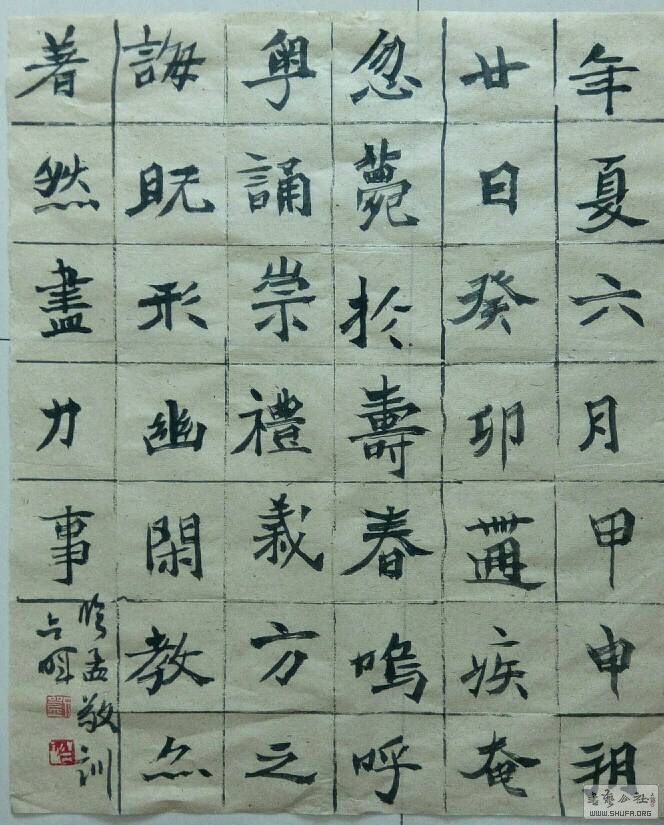 年夏六月甲申朔
廿日癸卯遘疾奄
忽薨於壽春嗚呼
粵誦崇禮義方之
誨既形幽閑教亦
著然盡力事
临孟敬训
书艺公社
WWW.SHUFA.ORG